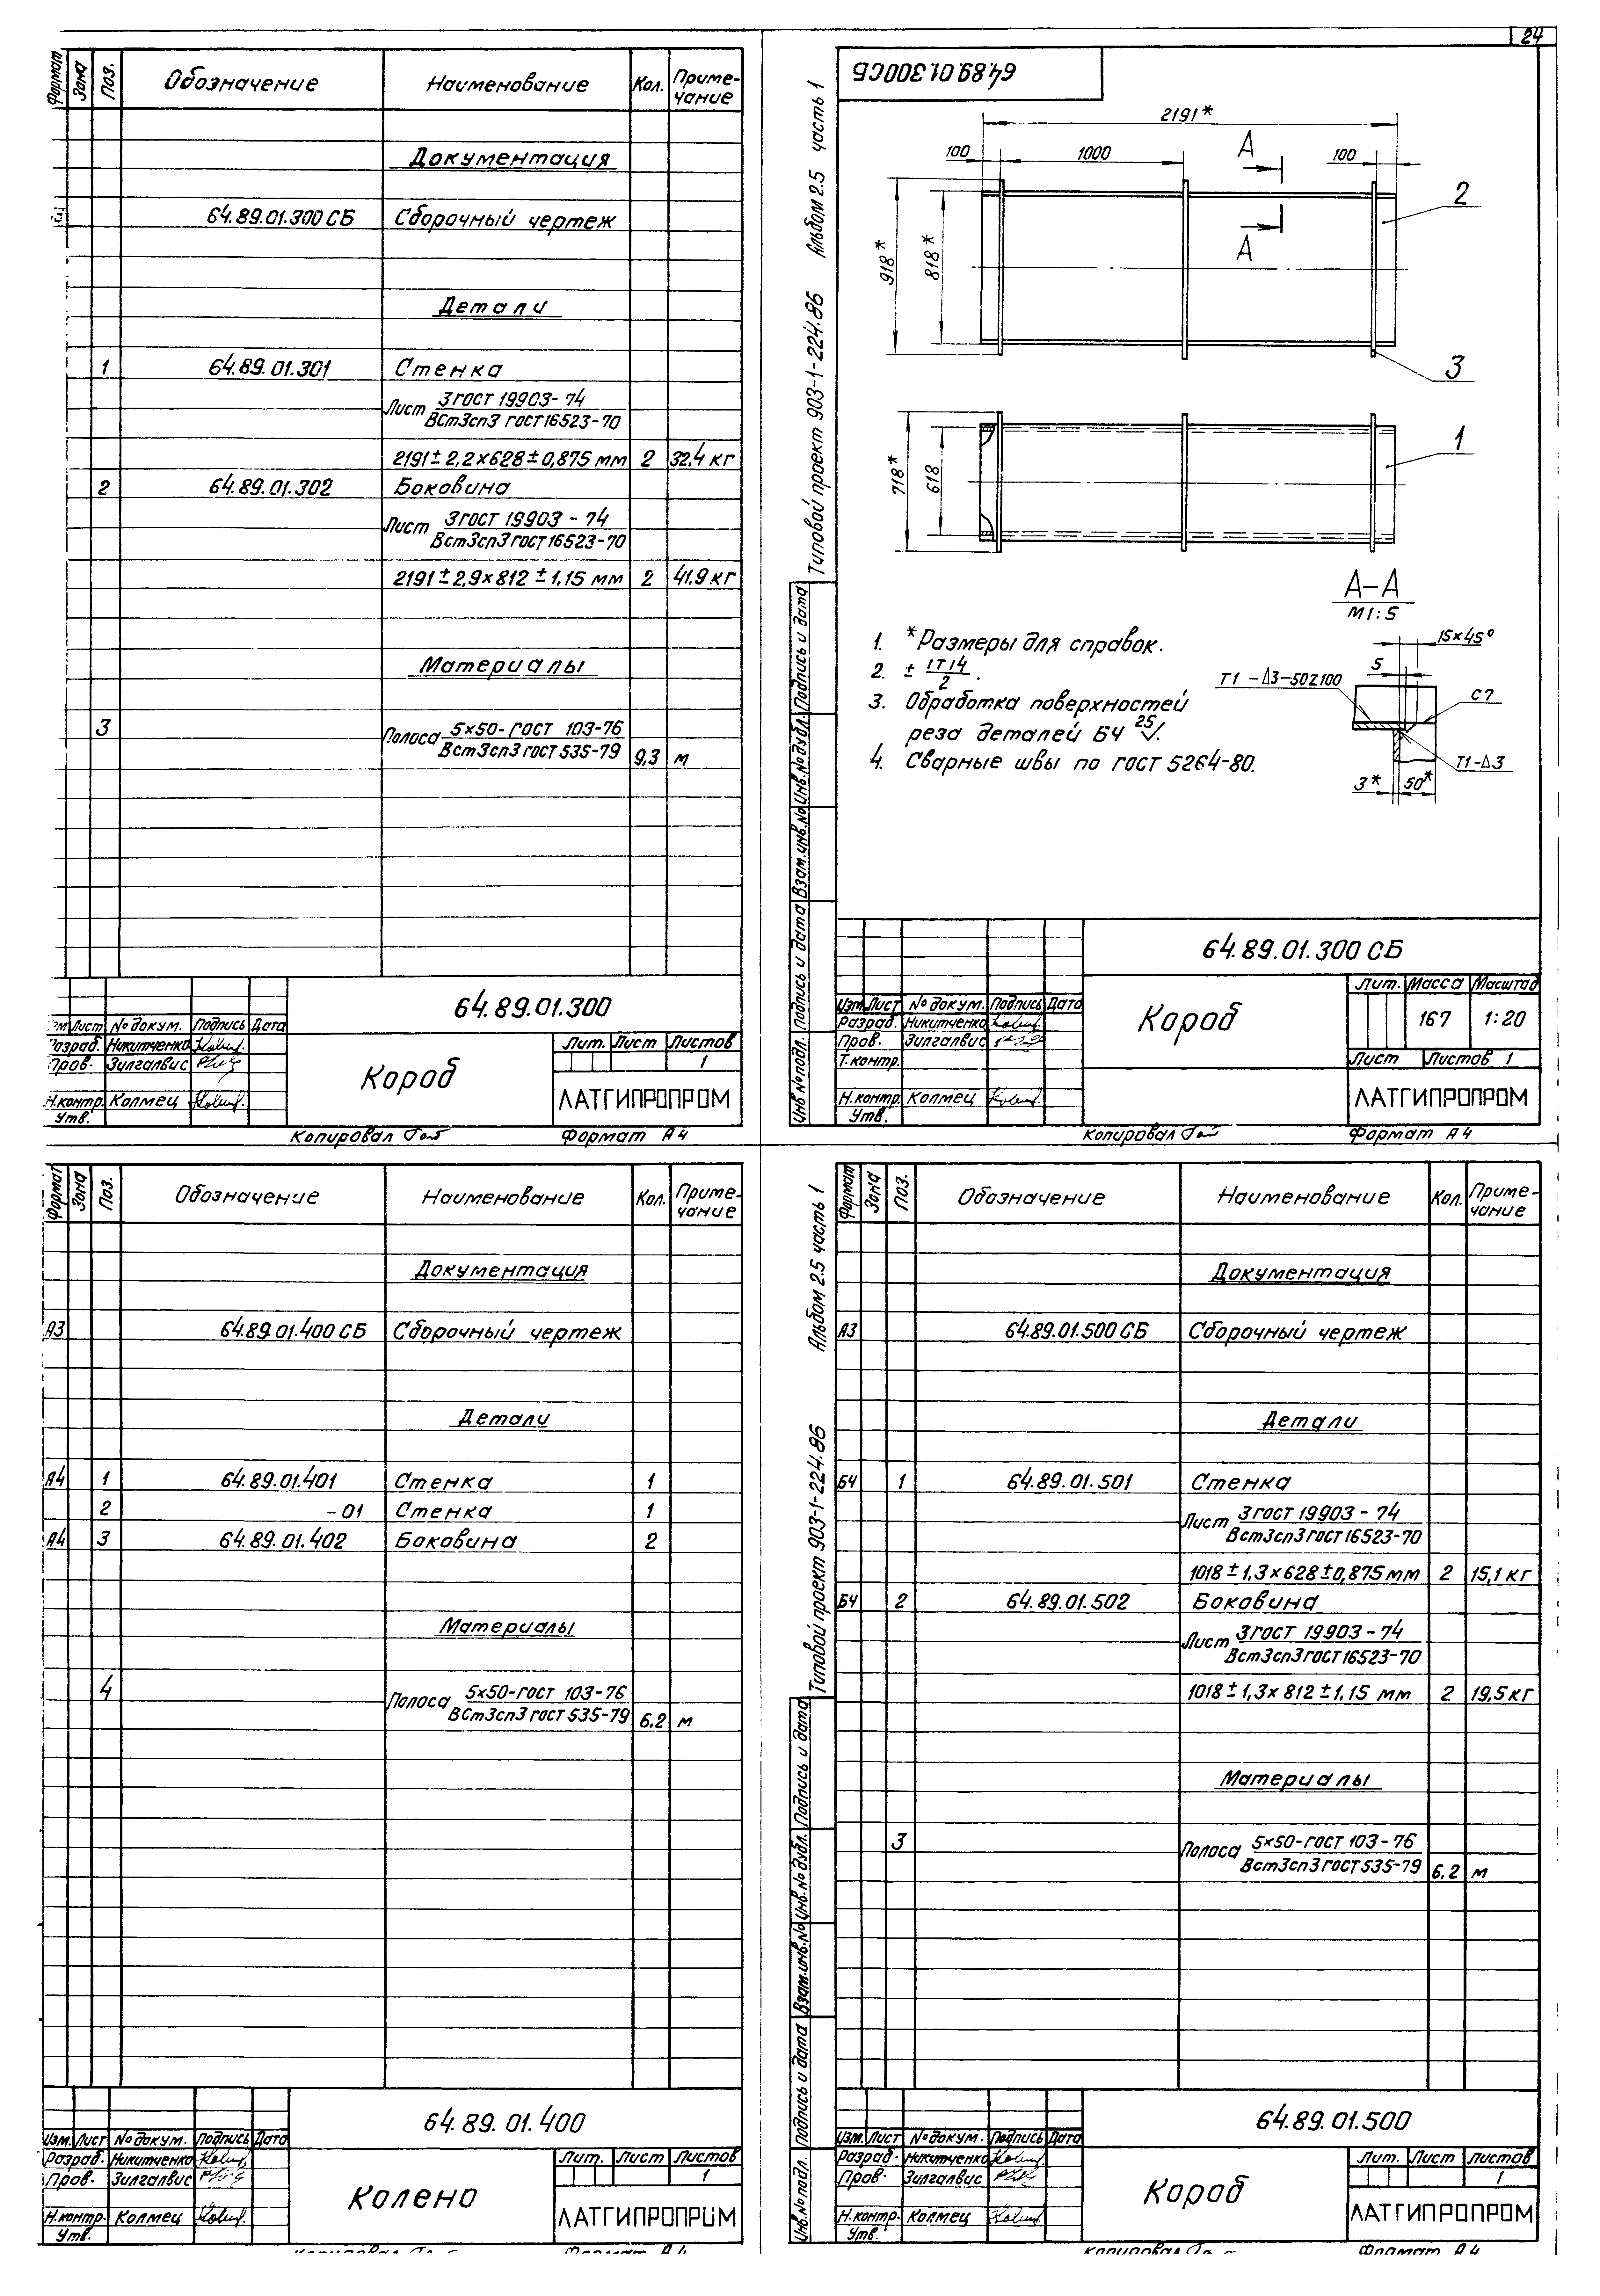 24
Формат Зона Поз. Обозначение Наименование Кол. Приме-
чание
Документация
64.89.01.300 СБ Сборочный чертеж
Детали
1 64.89.01.301 Стенка
Лист 3 ГОСТ 19903-74
ВСт3сп3 ГОСТ 16523-70
2191 ± 2,2 × 628 ± 0,875 мм 2 32,4 кг
2 64.89.01.302 Боковина
Лист 3 ГОСТ 19903-74
ВСт3сп3 ГОСТ 16523-70
2191 ± 2,9 × 812 ± 1,15 мм 2 41,9 кг
Материалы
3 Полоса 5×50-ГОСТ 103-76
ВСт3сп3 ГОСТ 535-79 9,3 м
64.89.01.300
Лист № докум. Подпись Дата
Разраб. Никитченко
Пров. Зилгалвис
Н.контр. Колмец
Утв.
Короб
Лит. Лист Листов
1
ЛАТГИПРОПРОМ
Копировал Формат А4
Типовой проект 903-1-224.86 Альбом 2.5 часть 1
64.89.01.300СБ
2191*
100 1000 А 100
2
918* 818* А
3
1
718* 618
А-А
М1:5
15×45°
5
Т1-Δ3-50Z100
С7
Т1-Δ3
3* 50*
1. *Размеры для справок.
2. ± IT14
2 .
3. Обработка поверхностей
реза деталей БЧ 25√.
4. Сварные швы по ГОСТ 5264-80.
Инв.№ подл. Подпись и дата Взам.инв.№ Инв.№ дубл. Подпись и дата
64.89.01.300 СБ
Изм. Лист № докум. Подпись Дата
Разраб. Никитченко
Пров. Зилгалвис
Т.контр.
Н.контр. Колмец
Утв.
Короб
Лит. Масса Масштаб
167 1:20
Лист Листов 1
ЛАТГИПРОПРОМ
Копировал Формат А4
Формат Зона Поз. Обозначение Наименование Кол. Приме-
чание
Документация
А3 64.89.01.400 СБ Сборочный чертеж
Детали
А4 1 64.89.01.401 Стенка 1
2 -01 Стенка 1
А4 3 64.89.01.402 Боковина 2
Материалы
4 Полоса 5×50-ГОСТ 103-76
ВСт3сп3 ГОСТ 535-79 6.2 м
64.89.01.400
Изм. Лист № докум. Подпись Дата
Разраб. Никитченко
Пров. Зилгалвис
Н.контр. Колмец
Утв.
Колено
Лит. Лист Листов
1
ЛАТГИПРОПРОМ
Копировал Формат А4
Типовой проект 903-1-224.86 Альбом 2.5 часть 1
Формат Зона Поз. Обозначение Наименование Кол. Приме-
чание
Документация
А3 64.89.01.500 СБ Сборочный чертеж
Детали
БЧ 1 64.89.01.501 Стенка
Лист 3 ГОСТ 19903-74
ВСт3сп3 ГОСТ 16523-70
1018 ± 1,3 × 628 ± 0,875 мм 2 15,1 кг
БЧ 2 64.89.01.502 Боковина
Лист 3 ГОСТ 19903-74
ВСт3сп3 ГОСТ 16523-70
1018 ± 1,3 × 812 ± 1,15 мм 2 19,5 кг
Материалы
3 Полоса 5×50-ГОСТ 103-76
ВСт3сп3 ГОСТ 535-79 6,2 м
Инв.№ подл. Подпись и дата Взам.инв.№ Инв.№ дубл. Подпись и дата
64.89.01.500
Изм. Лист № докум. Подпись Дата
Разраб. Никитченко
Пров. Зилгалвис
Н.контр. Колмец
Утв.
Короб
Лит. Лист Листов
1
ЛАТГИПРОПРОМ
Копировал Формат А4